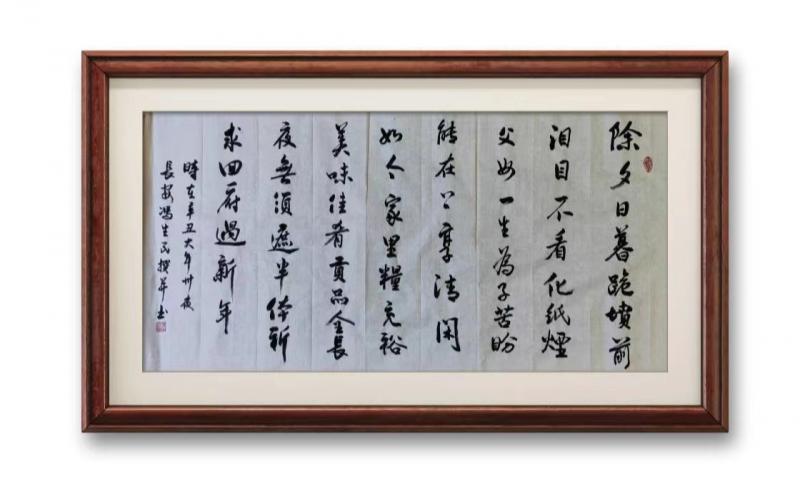 除夕日暮跪墳前
泪目不看化紙煙
父母一生為子苦盼
能在享清闲
如今家里糧充裕
美味佳肴貢品全長
夜無須遮半体祈
求回府過新年
時在辛丑大年卅夜
長安馮生民撰并书